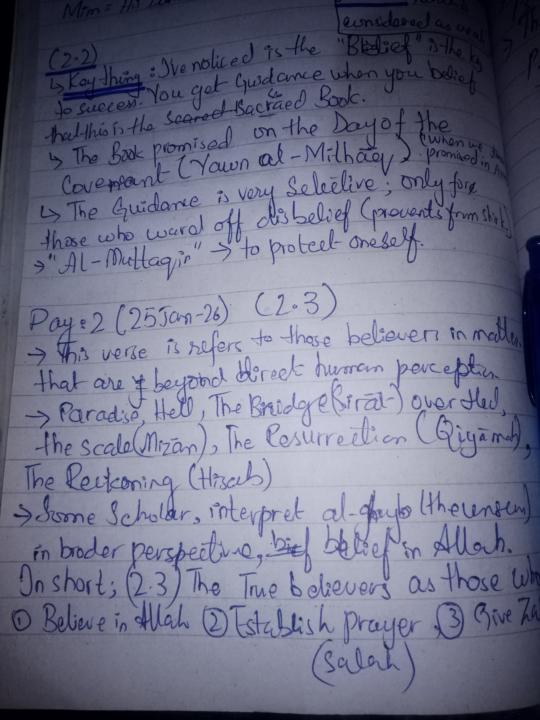 considered as
(2.2)
↳ Key thing: I've noticed is the "Belief" is the key
to success. You get Guidance when you belief
that this is the Sacraed Book.
↳ The Book promised on the Day of the
Covenant (Yawn al-Mithāq) (when we
promised in
↳ The Guidance is very Selective; only for
those who ward off disbelief (prevents from shirk)
→ "Al-Muttaqin" → to protect oneself.
Day:2 (25 Jan-26) (2.3)
→ This verse is refers to those believers in matter
that are beyond direct human perception
→ Paradise, Hell, The Bridge (Sirāt) over Hell,
the scale (Mizān), The Resurrection (Qiyāmah),
The Reckoning (Hisab)
→ Some Scholar, interpret al-ghayb (the unseen)
in broder perspective, belief in Allah.
In short; (2.3) The True believers as those who
① Believe in Allah ② Establish prayer ③ Give Za
(Salah)